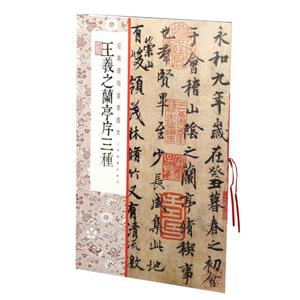 王羲之蘭亭序三種
永和九年歲在癸丑暮春之初會
于會稽山陰之蘭亭脩稧事
也羣賢畢至少長咸集此地
有崇山峻領茂林脩竹又有清流激